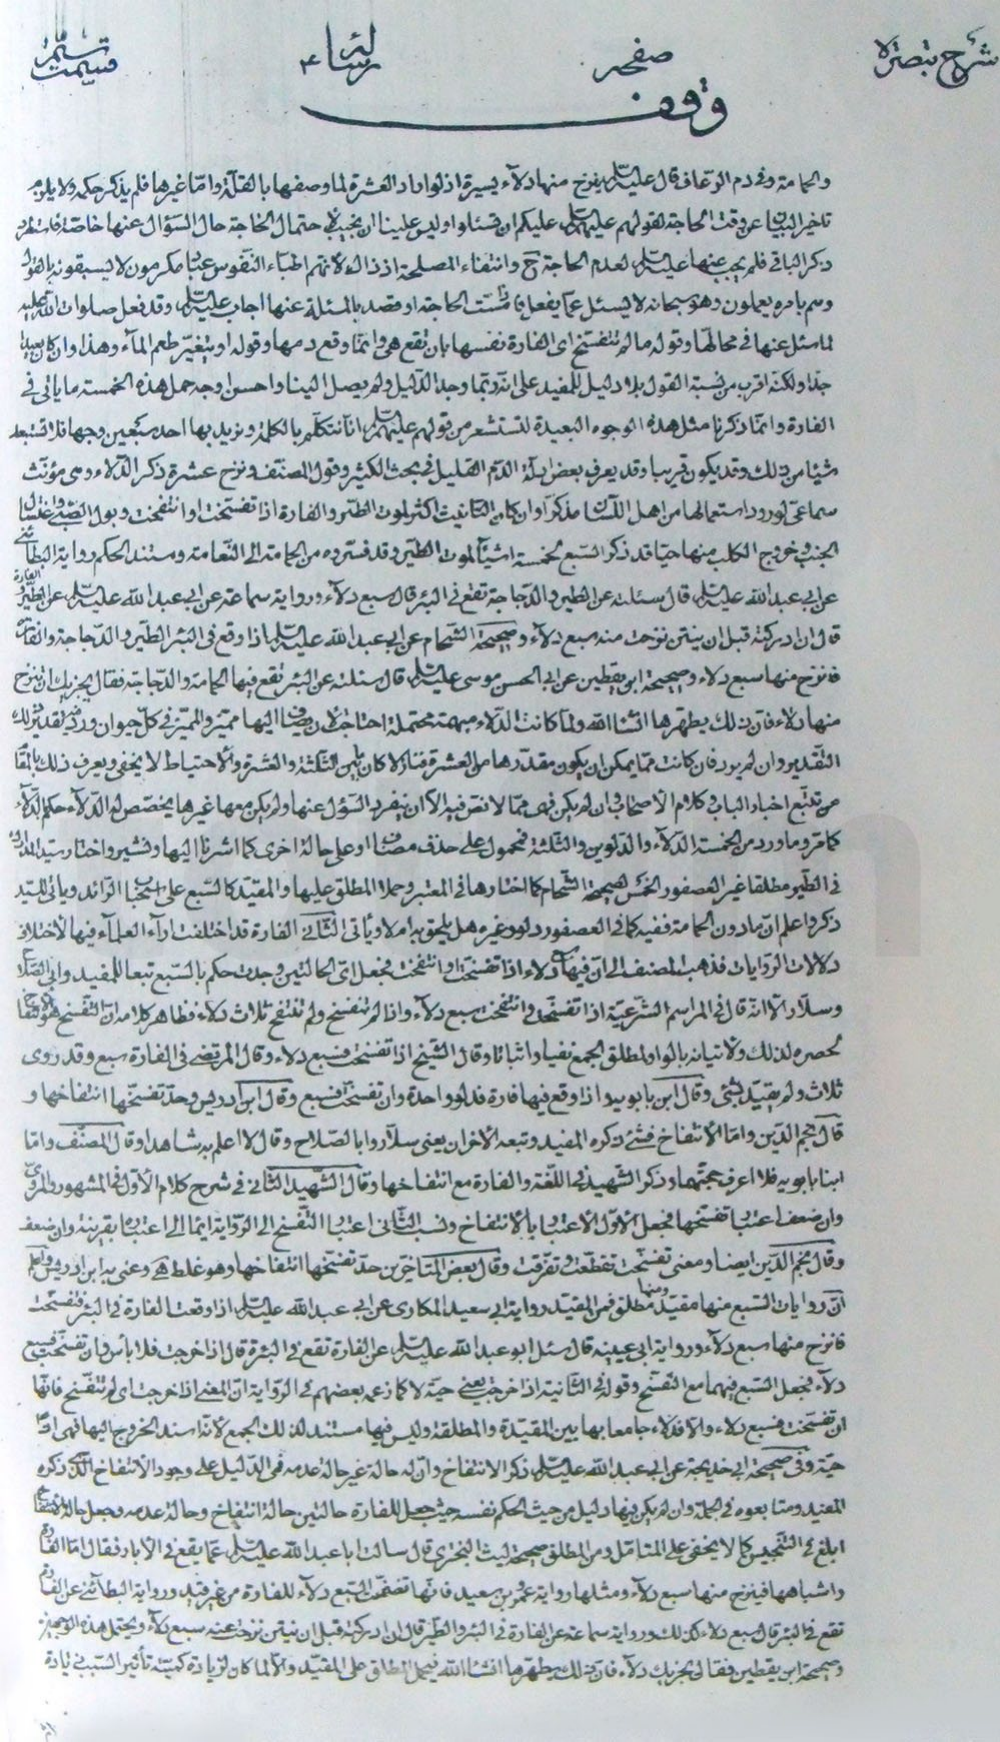 شرح تبصرة صفحه
وقف
والحمامة وفي دم الرعاف قال عليه السلم ينزح منها دلاء يسيرة اذ لو اراد العشرة لما وصفها بالقلة واما غيرها فلم يذكر حكمه ولا يلزم
تاخير البيان عن وقت الحاجة لقولهم عليهم السلم عليكم ان تسئلوا وليس علينا ان نجيب لاحتمال الحاجة حال السؤال عنها خاصة
ذكر الباقي فلم يجب عنها عليه السلم لعدم الحاجة ح وانتفاء المصلحة اذ ذاك لانهم اطباء النفوس عباد مكرمون لا يسبقونه بالقول
وهم بامره يعملون وهو سبحانه لا يسئل عما يفعل الحاجة او قصد بالمسئلة عنها اجاب عليه السلم وقد فعل صلوات الله عليه
لما سئل عنها في محالها وقوله ما لم تتفسخ اي الفارة نفسها بان تقع هي وانما وقع دمها وقوله او يتغير طعم الماء وهذا وان كان بعيدا
جدا ولكنه اقرب من نسبة القول بلا دليل للمفيد على انه ربما وجد الدليل ولم يصل الينا واحسن اوجه حمل هذه الخمسة ما ياتي في
الفارة وانما ذكرنا مثل هذه الوجوه البعيدة لتستشعر من قولهم عليهم السلم انا نتكلم بالكلمة ونريد بها احد سبعين وجها فلا تستبعد
شيئا من ذلك وقد يكون قريبا وقد يعرف بعض ادلة الدم القليل في بحث الكثير وقول المصنف ونزح عشرة ذكر الدلاء وهي مؤنث
سماعي لورود استعمالها من اهل اللسان مذكرا وان كان التانيث اكثر لموت الطير والفارة اذا تفسخت او انتفخت وبول الصبي واغتسال
الجنب وخروج الكلب منها حيا قد ذكر السبع لخمسة اشياء لموت الطير وقد فسروه من الحمامة الى النعامة ومستند الحكم رواية البطائني
عن ابي عبد الله عليه السلم قال سئلته عن الطير والدجاجة تقع في البئر قال سبع دلاء ورواية سماعة عن ابي عبد الله عليه السلم عن الفارة والطير
قال ان ادركته قبل ان ينتن نزحت منه سبع دلاء وصحيحة الشحام عن ابي عبد الله عليه السلم اذا وقع في البئر الطير والدجاجة والفارة
فانزح منها سبع دلاء وصحيحة ابن يقطين عن ابي الحسن موسى عليه السلم قال سئلته عن البئر تقع فيها الحمامة والدجاجة فقال يجزيك ان تنزح
منها دلاء فان ذلك يطهرها انشاء الله ولما كانت الدلاء مبهمة محتملة احتاجت لان يضاف اليها مميز والمميز في كل حيوان ورد فيه تقدير ذلك
التقدير وان لم يرد فان كانت مما يمكن ان يكون مقدرها من العشرة فنازلا كان بين الثلثة والعشرة والاحتياط لا يخفى ويعرف ذلك
من تتبع اخبار الباب وكلام الاصحاب وان لم يكن فهي مما لا نص فيه الا ان ينفرد السؤل عنها ولم يكن معها غيرها يخصص له الدلاء حكم الدلاء
كما مر وما ورد من الخمسة الدلاء والدلوين والثلثة فمحمول على حذف مضاف او على حالة اخرى كما اشرنا اليها ونشير واختار سيد المدارك
في الطير مطلقا غير العصفور الخمس لصحيحة الشحام كما اختارها في المعتبر وحمل المطلق عليها والمقيد كالسبع على استحباب الزائد وياتي للسيد
ذكر واعلم ان ما دون الحمامة ففيه كما في العصفور دلو وغيره هل يلحق به ام لا وياتي الثاني الفارة قد اختلفت اراء العلماء فيها لاختلاف
دلالات الروايات فذهب المصنف الى ان فيها سبع دلاء اذا تفسخت او انتفخت فجعل اي الحالتين وجدت حكم بالسبع تبعا للمفيد وابي الصلاح
وسلار الا انه قال في المراسم الشرعية اذا تفسخت وانتفخت سبع دلاء واذا لم تتفسخ ولم تنتفخ ثلاث دلاء فظاهر كلامه ان التفسخ هو الانتفاخ
لحصره لذلك ولاتيانه بالواو لمطلق الجمع نفيا واثباتا وقال الشيخ اذا تفسخت فسبع دلاء وقال المرتضى في الفارة سبع وقد روى
ثلاث ولم يقيد بشئ وقال ابن بابويه اذا وقع فيها فارة فدلو واحدة وان تفسخت فسبع وقال ابن ادريس وحد تفسخها انتفاخها و
قال نجم الدين واما الانتفاخ فشئ ذكره المفيد وتبعه الاخران يعني سلار وابا الصلاح وقال لا اعلم به شاهدا وقال المصنف واما
ابنا بابويه فلا اعرف حجتهما وذكر الشهيد في اللمعة والفارة مع انتفاخها وقال الشهيد الثاني في شرح كلام الاول في المشهور والمروي
وان ضعف اعتبار تفسخها فجعل الاول الاعتبار بالانتفاخ ونسب الثاني اعتبار التفسخ الى الرواية ايماء الى اعتبارها بقرينة وان ضعف
وقال نجم الدين ايضا ومعنى تفسخت تقطعت وتفرقت وقال بعض المتاخرين حد تفسخها انتفاخها وهو غلط وعنى به ابن ادريس واعلم
ان روايات السبع منها مقيد ومنها مطلق فمن المقيد رواية ابي سعيد المكاري عن ابي عبد الله عليه السلم اذا وقعت الفارة في البئر فتفسخت
فانزح منها سبع دلاء ورواية ابي عيينة قال سئل ابو عبد الله عليه السلم عن الفارة تقع في البئر قال اذا خرجت فلا باس وان تفسخت فسبع
دلاء فجعل السبع فيهما مع التفسخ وقوله في الثانية اذا خرجت يعني حية لا كما زعمه بعضهم في الرواية ان المعنى اذا خرجت اي لم تتفسخ فانها
ان تفسخت فسبع دلاء والا فدلاء جامعا بها بين المقيدة والمطلقة وليس فيها مستند لذلك الجمع لانه اسند الخروج اليها فهي اذا
حية وفي صحيحة ابي خديجة عن ابي عبد الله عليه السلم ذكر الانتفاخ وان له حالة غير حالة عدمه فهي الدليل على وجود الانتفاخ الذي ذكره
المفيد ومتابعوه في الجملة وان لم يكن فيها دليل من حيث الحكم نفسه حيث جعل للفارة حالتين حالة انتفاخ وحالة عدمه وجعل حالة الانتفاخ
ابلغ في التنجيس كما لا يخفى على المتامل ومن المطلق صحيحة ليث البختري قال سالت ابا عبد الله عليه السلم عما يقع في الابار فقال اما الفارة
واشباهها فينزح منها سبع دلاء ومثلها رواية عمرو بن سعيد فانها تضمنت السبع دلاء للفارة من غير قيد ورواية البطائني عن الفارة
تقع في البئر قال سبع دلاء كذلك ورواية سماعة عن الفارة في البئر والطير قال ان ادركته قبل ان ينتن نزحت عنه سبع دلاء ويحتمل هذه
وصحيحة ابن يقطين فقال يجزيك دلاء فان ذلك يطهرها انشاء الله فيحمل المطلق على المقيد والا لما كان لزيادة كمية تأثير السبب في زيادة